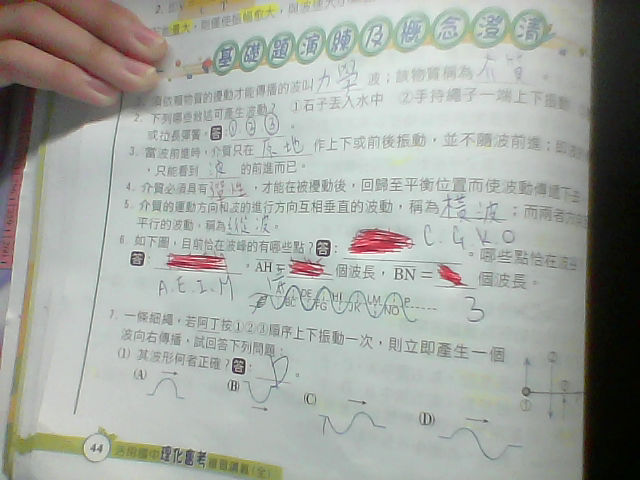 基礎題演練及概念澄清
須依賴物質的擾動才能傳播的波叫力學波；該物質稱為介質。
2. 下列哪些敘述可產生波動？ ①石子丟入水中 ②手持繩子一端上下振動
或拉長彈簧。答：①②③。
3. 當波前進時，介質只在原地作上下或前後振動，並不隨波前進；即波
，只能看到波的前進而已。
4. 介質必須具有彈性，才能在被擾動後，回歸至平衡位置而使波動傳遞下去
5. 介質的運動方向和波的進行方向互相垂直的波動，稱為橫波；而兩者方向
平行的波動，稱為縱波。
6. 如下圖，目前恰在波峰的有哪些點？答： C.G.K.O 。哪些點恰在波
答： ，AH= 個波長，BN= 個波長。
A.E.I.M 3
7. 一條細繩，若阿丁按①②③順序上下振動一次，則立即產生一個
波向右傳播，試回答下列問題：
(1) 其波形何者正確？答：D。
(A) (B) (C) (D)
44 活用國中理化會考複習講義(全)